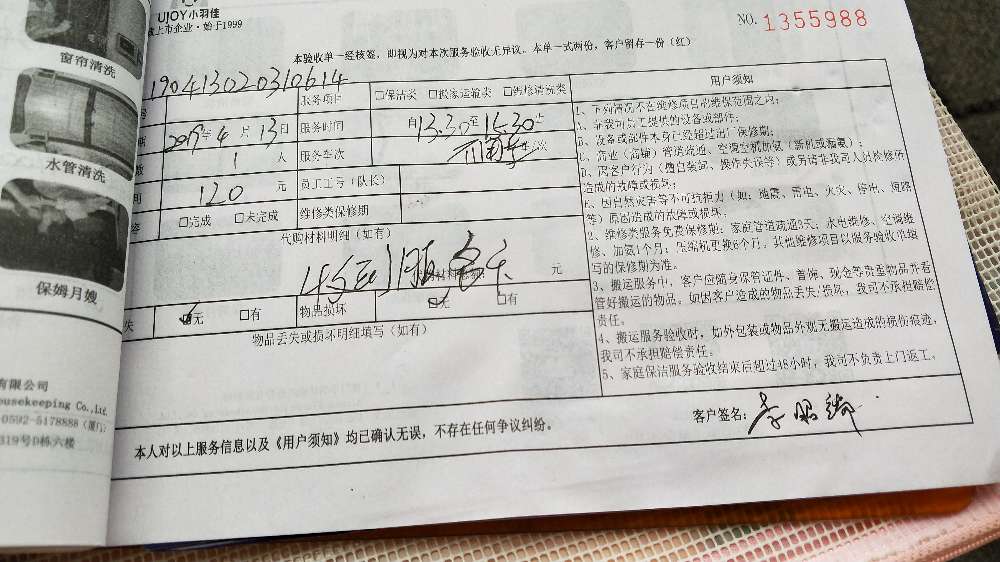 UJOY小羽佳
上市企业·始于1999
NO. 1355988
本验收单一经核签，即视为对本次服务验收无异议。本单一式两份，客户留存一份（红）
窗帘清洗
水管清洗
保姆月嫂
有限公司
ousekeeping Co.,Ltd.
0592-5178888（厦门）
319号D栋六楼
190413020310614
服务项目
□保洁类 □搬家运输类 □维修清洗类
2019年4月13日
服务时间
自13.30至16.30止
1人
服务车次
120元
员工工号（队长）
□完成 □未完成
维修类保修期
代购材料明细（如有）
元
失
□无 □有
物品损坏
□无 □有
物品丢失或损坏明细填写（如有）
用户须知
1、下列情况不在维修项目常维保范围之内：
A、非我司员工提供的设备或部件；
B、设备或部件本身已经超过出厂保修期；
造成的故障或损坏；
E、因自然灾害等不可抗拒力（如：地震、雷电、火灾、停电、短路
等）原因造成的故障或损坏。
2、维修类服务免费保修期：家庭管道疏通3天；水电维修、空调维
修、加氨1个月；压缩机更换6个月。其他维修项目以服务验收单填
写的保修期为准。
3、搬运服务中，客户应随身保管证件、首饰、现金等贵重物品并看
管好搬运的物品。如因客户造成的物品丢失/损坏，我司不承担赔偿
责任。
4、搬运服务验收时，如外包装或物品外观无搬运造成的损伤痕迹，
我司不承担赔偿责任。
5、家庭保洁服务验收结束后超过48小时，我司不负责上门返工。
本人对以上服务信息以及《用户须知》均已确认无误，不存在任何争议纠纷。
客户签名：